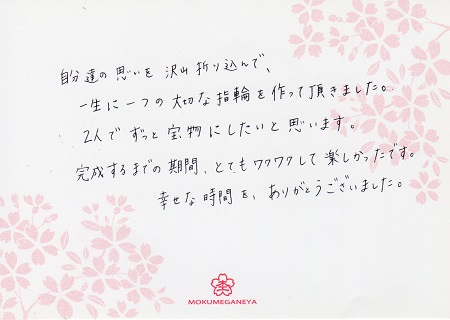 自分達の思いを沢山折り込んで、
一生に一つの大切な指輪を作って頂きました。
2人でずっと宝物にしたいと思います。
完成するまでの期間、とてもワクワクして楽しかったです。
幸せな時間を、ありがとうございました。
MOKUMEGANEYA